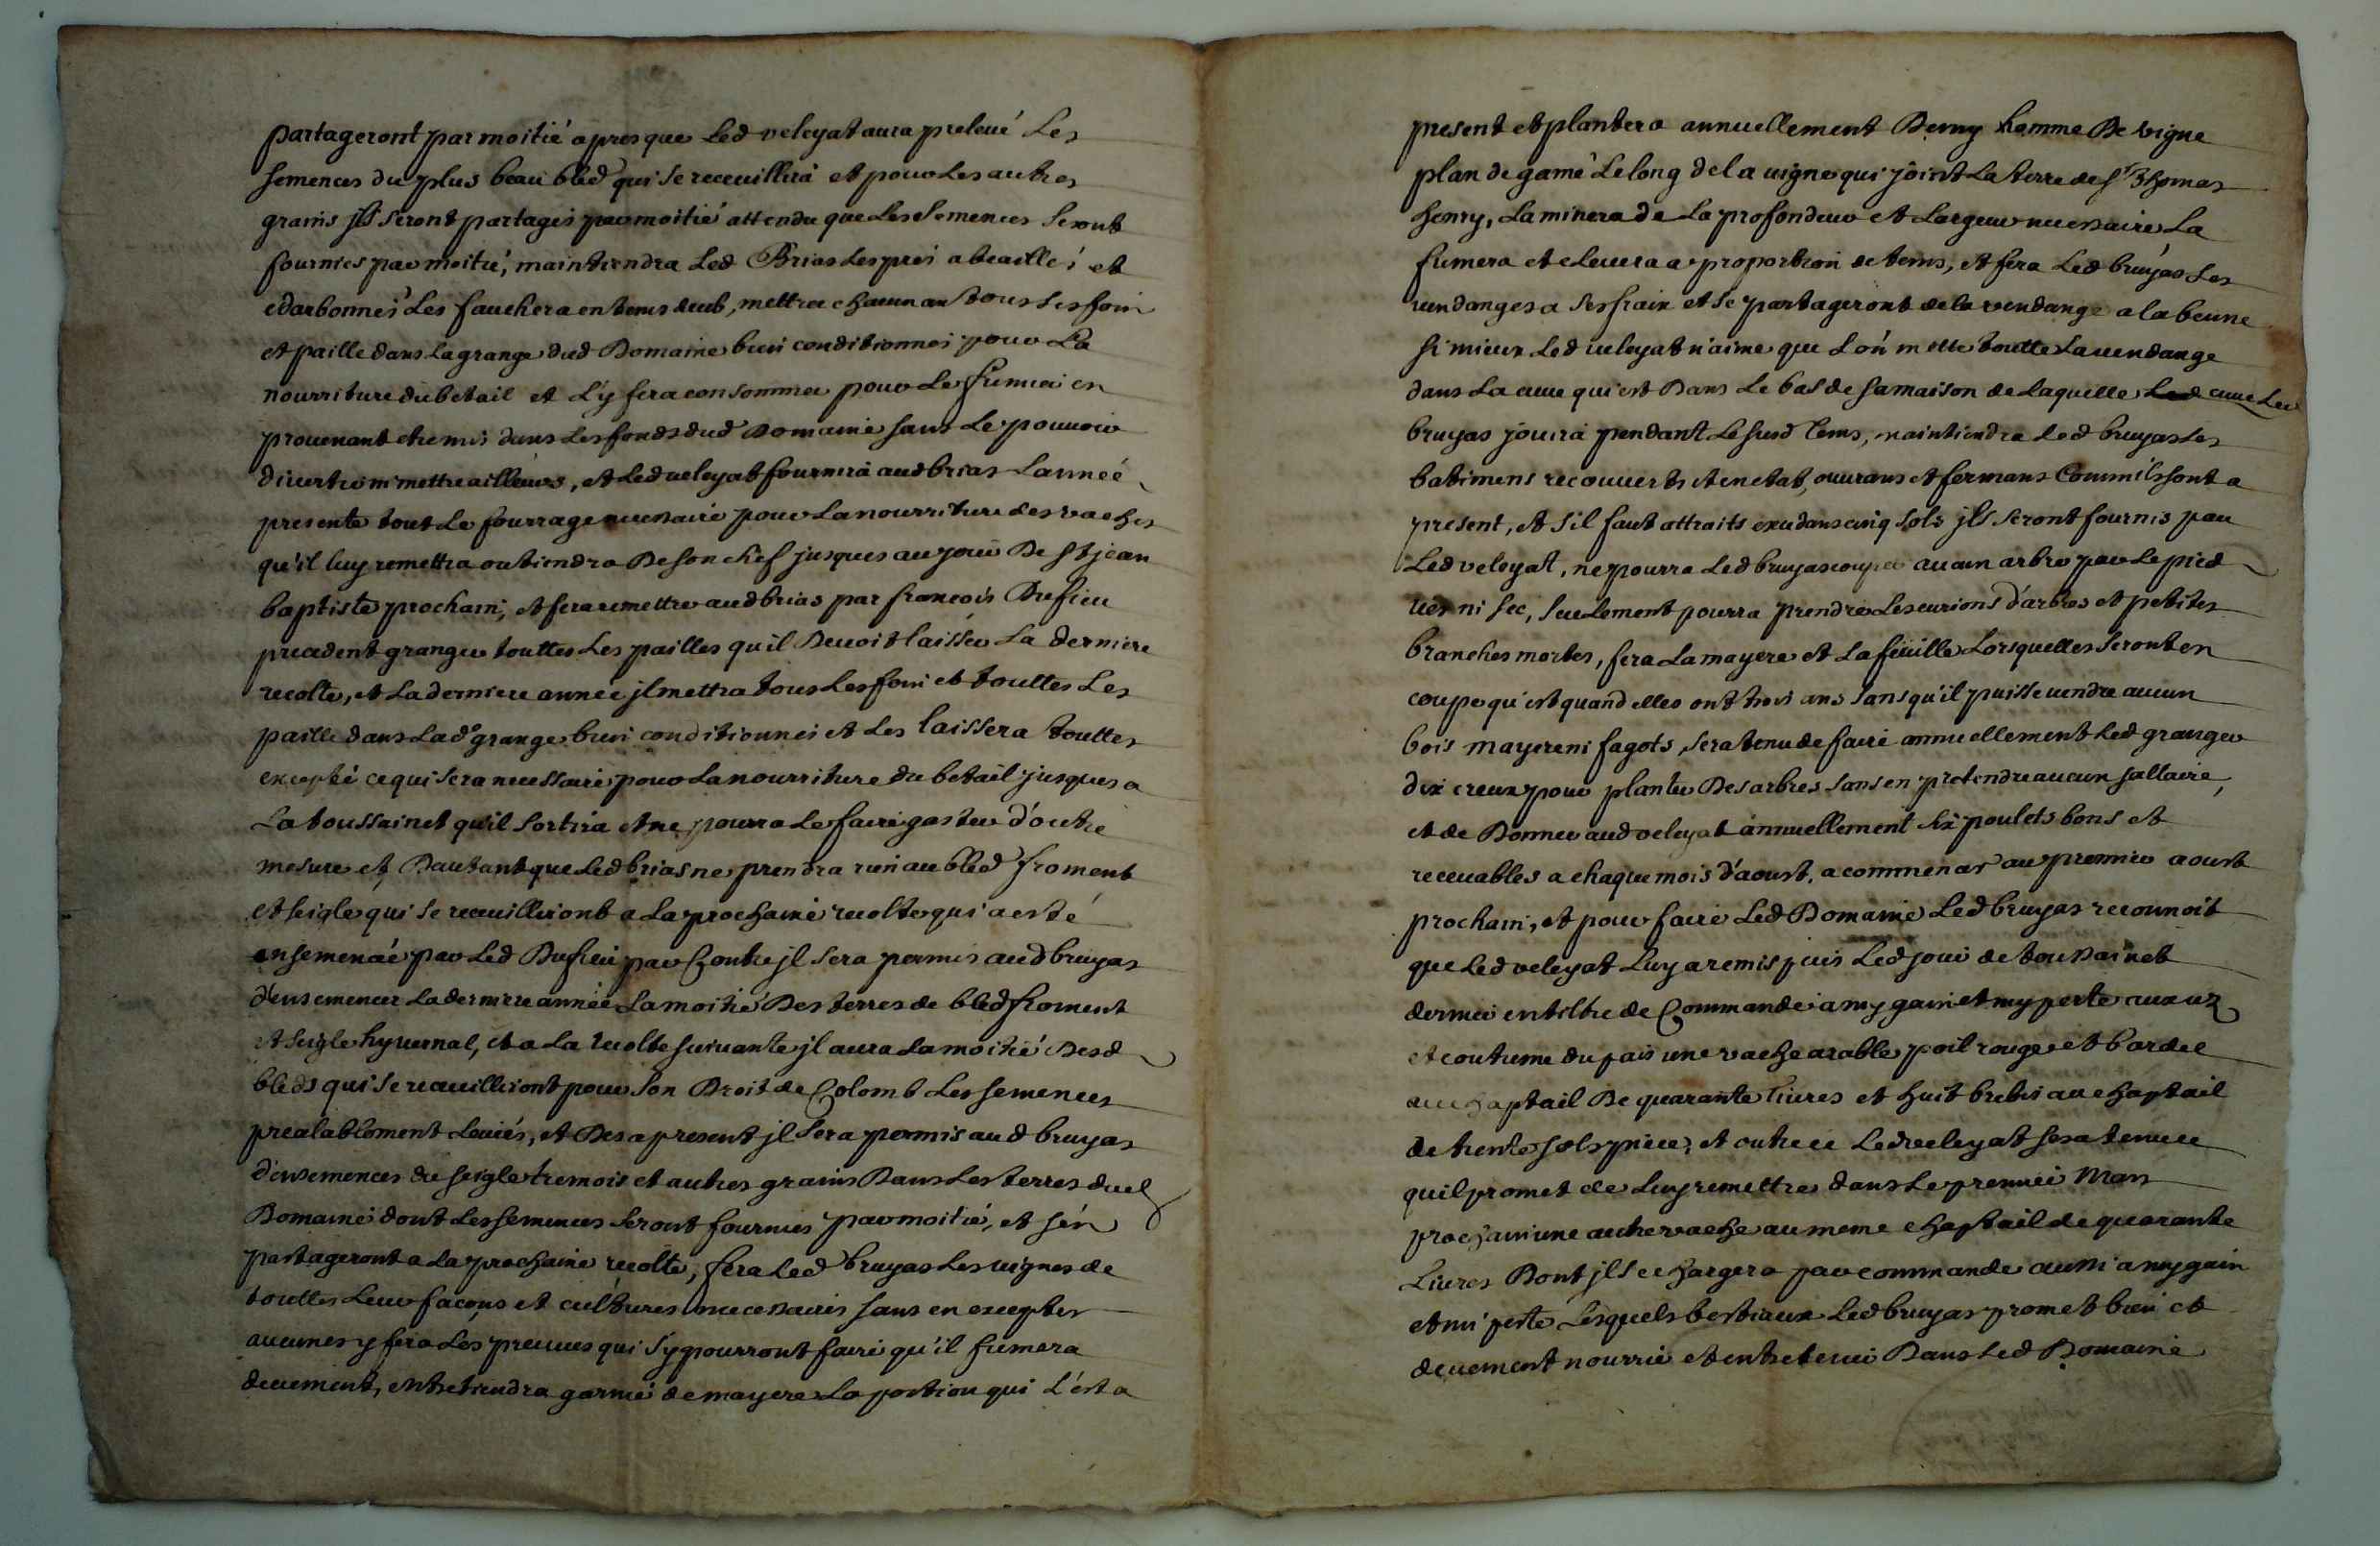 partageront par moitié apres que Led veleyat aura prelevé Les
semences du plus beau bled qui se receuillira et pour Les autres
grains jls seront partagés par moitié attendu que Les semences seront
fournies par moitié, maintiendra Led Brias Les prés abeaillés et
edarbonnés Les fauchera en tems deub, mettra chacun an tous Les foin
et paille dans La grange dud Domaine bien conditionnés pour La
nourriture du betail et L'y fera consommer pour Le fumier en
provenant etre mis dans Les fonds dud Domaine sans Le pouvoir
divertir ni mettre ailleurs, et Led veleyat fournira aud brias Lannée
presente tout Le fourrage necessaire pour La nourriture des vaches
qu'il luy remettra ou tiendra De son chef jusques au jour De St jean
baptiste prochain, et fera remettre aud brias par francois Dufieu
precedent granger touttes Les pailles quil Devoit laisser La derniere
recolte, et La derniere année jl mettra tous Les foin et touttes Les
paille dans Lade grange bien conditionnés et Les laissera touttes
excepté ce qui sera necessaire pour La nourriture du betail jusques a
La toussainct qu'il sortira et ne pourra Le faire gaster d'outre
mesure et Dautant que Led brias ne prendra rien au bled froment
et seigle qui se receuilliront a La prochaine recolte qui a esté
ensemencée par Led Dufieu par Contre jl sera permis aud bruyas
d'ensemencer La derniere année La moitié Des terres de bled froment
et seigle hyvernal, et a La recolte suivante jl aura La moitié Desd
bleds qui se receuilliront pour son Droit de Colomb Les semences
prealablement Levées, et Des a present jl sera permis aud bruyas
d'ensemencer du seigle tremois et autres grains Dans Les terres dud
Domaine dont Les semences seront fournies par moitié, et s'en
partageront a La prochaine recolte, fera Led bruyas Les vignes de
touttes Leur façons et cultures necessaires sans en excepter
aucunes y fera Les preuves qui s'y pourront faire qu'il fumera
deuement, entretiendra garnie de mayere La portion qui L'est a
present et plantera annuellement Demy homme De vigne
plan de gamé Le long de la vigne qui joint La terre de Sr Thomas
henry, La minera de La profondeur et Largeur necessaire La
fumera et elevera a proportion de tems, et fera Led bruyas Les
vendanges a ses frais et se partageront de la vendange a la benne
si mieux Led veleyat n'aime que L'on mette toutte La vendange
dans La cuve qui est Dans Le bas de sa maison de Laquelle cuve Led
bruyas jouira pendant Le susd tems, maintiendra Led bruyas Les
batimens recouverts et en etat, ouvrans et fermans Comm'ils sont a
present, et s'il faut attraits excedans cinq sols jls seront fournis par
Led veleyat, ne pourra Led bruyas couper aucun arbre par Le pied
verd ni sec, seulement pourra prendre Les curions d'arbres et petites
branches mortes, fera La mayere et La feuille Lorsquelles seront en
coupe qu'est quand elles ont trois ans sans qu'il puisse vendre aucun
bois mayere ni fagots, sera tenu de faire annuellement Led granger
dix creux pour planter Des arbres sans en pretendre aucun sallaire,
et de Donner aud veleyat annuellement six poulets bons et
recevables a chaque mois d'aoust, a commencer au premier aoust
prochain, et pour faire Led Domaine Led bruyas reconnoit
que Led veleyat Luy a remis puis Led jour de toussainct
dernier en tiltre de Commande a my gain et my perte aux uz
et coutume du pais une vache arable poil rouge et bardel
au chaptail De quarante livres et huit brebis au chaptail
de trente sols piece, et outre ce Led veleyat sera tenu ce
quil promet de Luy remettre dans Le premier Mars
prochain une autre vache au meme chaptail de quarante
Livres Dont jl se chargera par commande aussi a my gain
et mi perte Lesquels bestiaux Led bruyas promet bien et
deuement nourrir et entretenir Dans Led Domaine